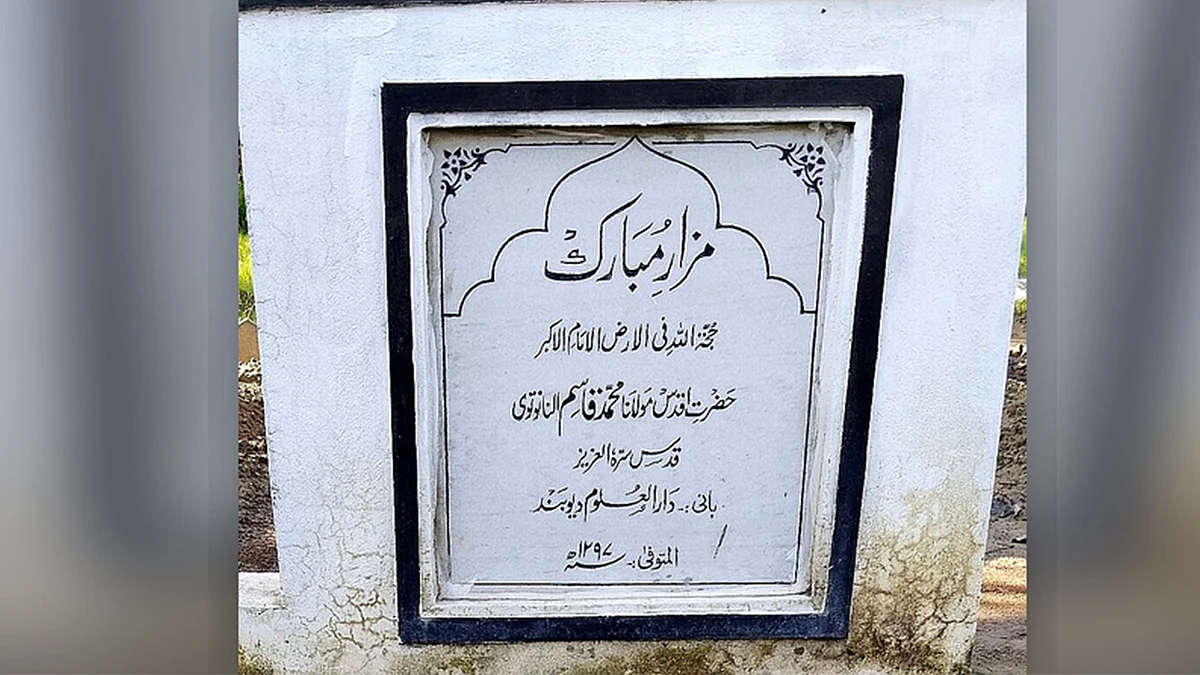 مزارِ مُبارک
حُجّۃ اللہ فی الارض الامام الاکبر
حضرتِ اقدس مولانا محمّد قاسم النانوتوی
قدس سرّہٗ العزیز
بانی :۔ دارالعلوم دیوبند
المتوفیٰ :۔ ۱۲۹۷ھ